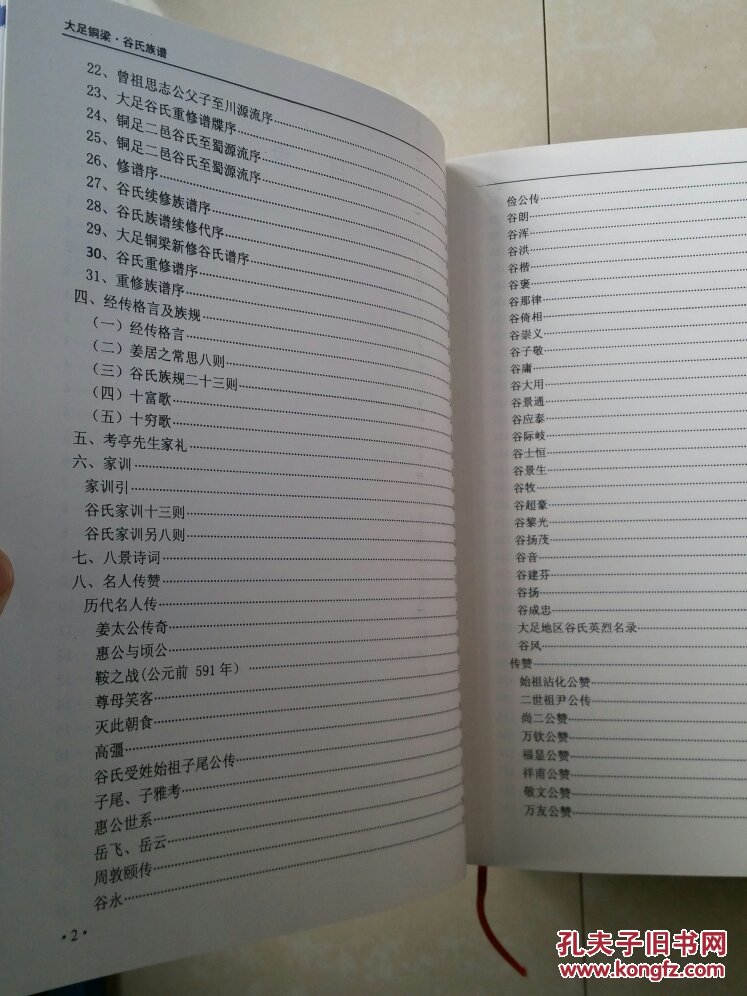 大足铜梁·谷氏族谱
22、曾祖思志公父子至川源流序
23、大足谷氏重修谱牒序
24、铜足二邑谷氏至蜀源流序
25、铜足二邑谷氏至蜀源流序
26、修谱序
27、谷氏续修族谱序
28、谷氏族谱续修代序
29、大足铜梁新修谷氏谱序
30、谷氏重修谱序
31、重修族谱序
四、经传格言及族规
（一）经传格言
（二）姜居之常思八则
（三）谷氏族规二十三则
（四）十富歌
（五）十穷歌
五、考亭先生家礼
六、家训
家训引
谷氏家训十三则
谷氏家训另八则
七、八景诗词
八、名人传赞
历代名人传
姜太公传奇
惠公与顷公
鞍之战(公元前 591年）
尊母笑客
灭此朝食
高彊
谷氏受姓始祖子尾公传
子尾、子雅考
惠公世系
岳飞、岳云
周敦颐传
谷永
·2·
俭公传
谷朗
谷浑
谷洪
谷楷
谷褒
谷那律
谷倚相
谷崇义
谷子敬
谷庸
谷大用
谷景通
谷应泰
谷际岐
谷士恒
谷景生
谷牧
谷超豪
谷黎光
谷扬茂
谷音
谷建芬
谷扬
谷成忠
大足地区谷氏英烈名录
谷风
传赞
始祖沾化公赞
二世祖尹公传
尚二公赞
万钦公赞
福显公赞
祥甫公赞
敬文公赞
万友公赞
孔夫子旧书网
www.kongfz.com